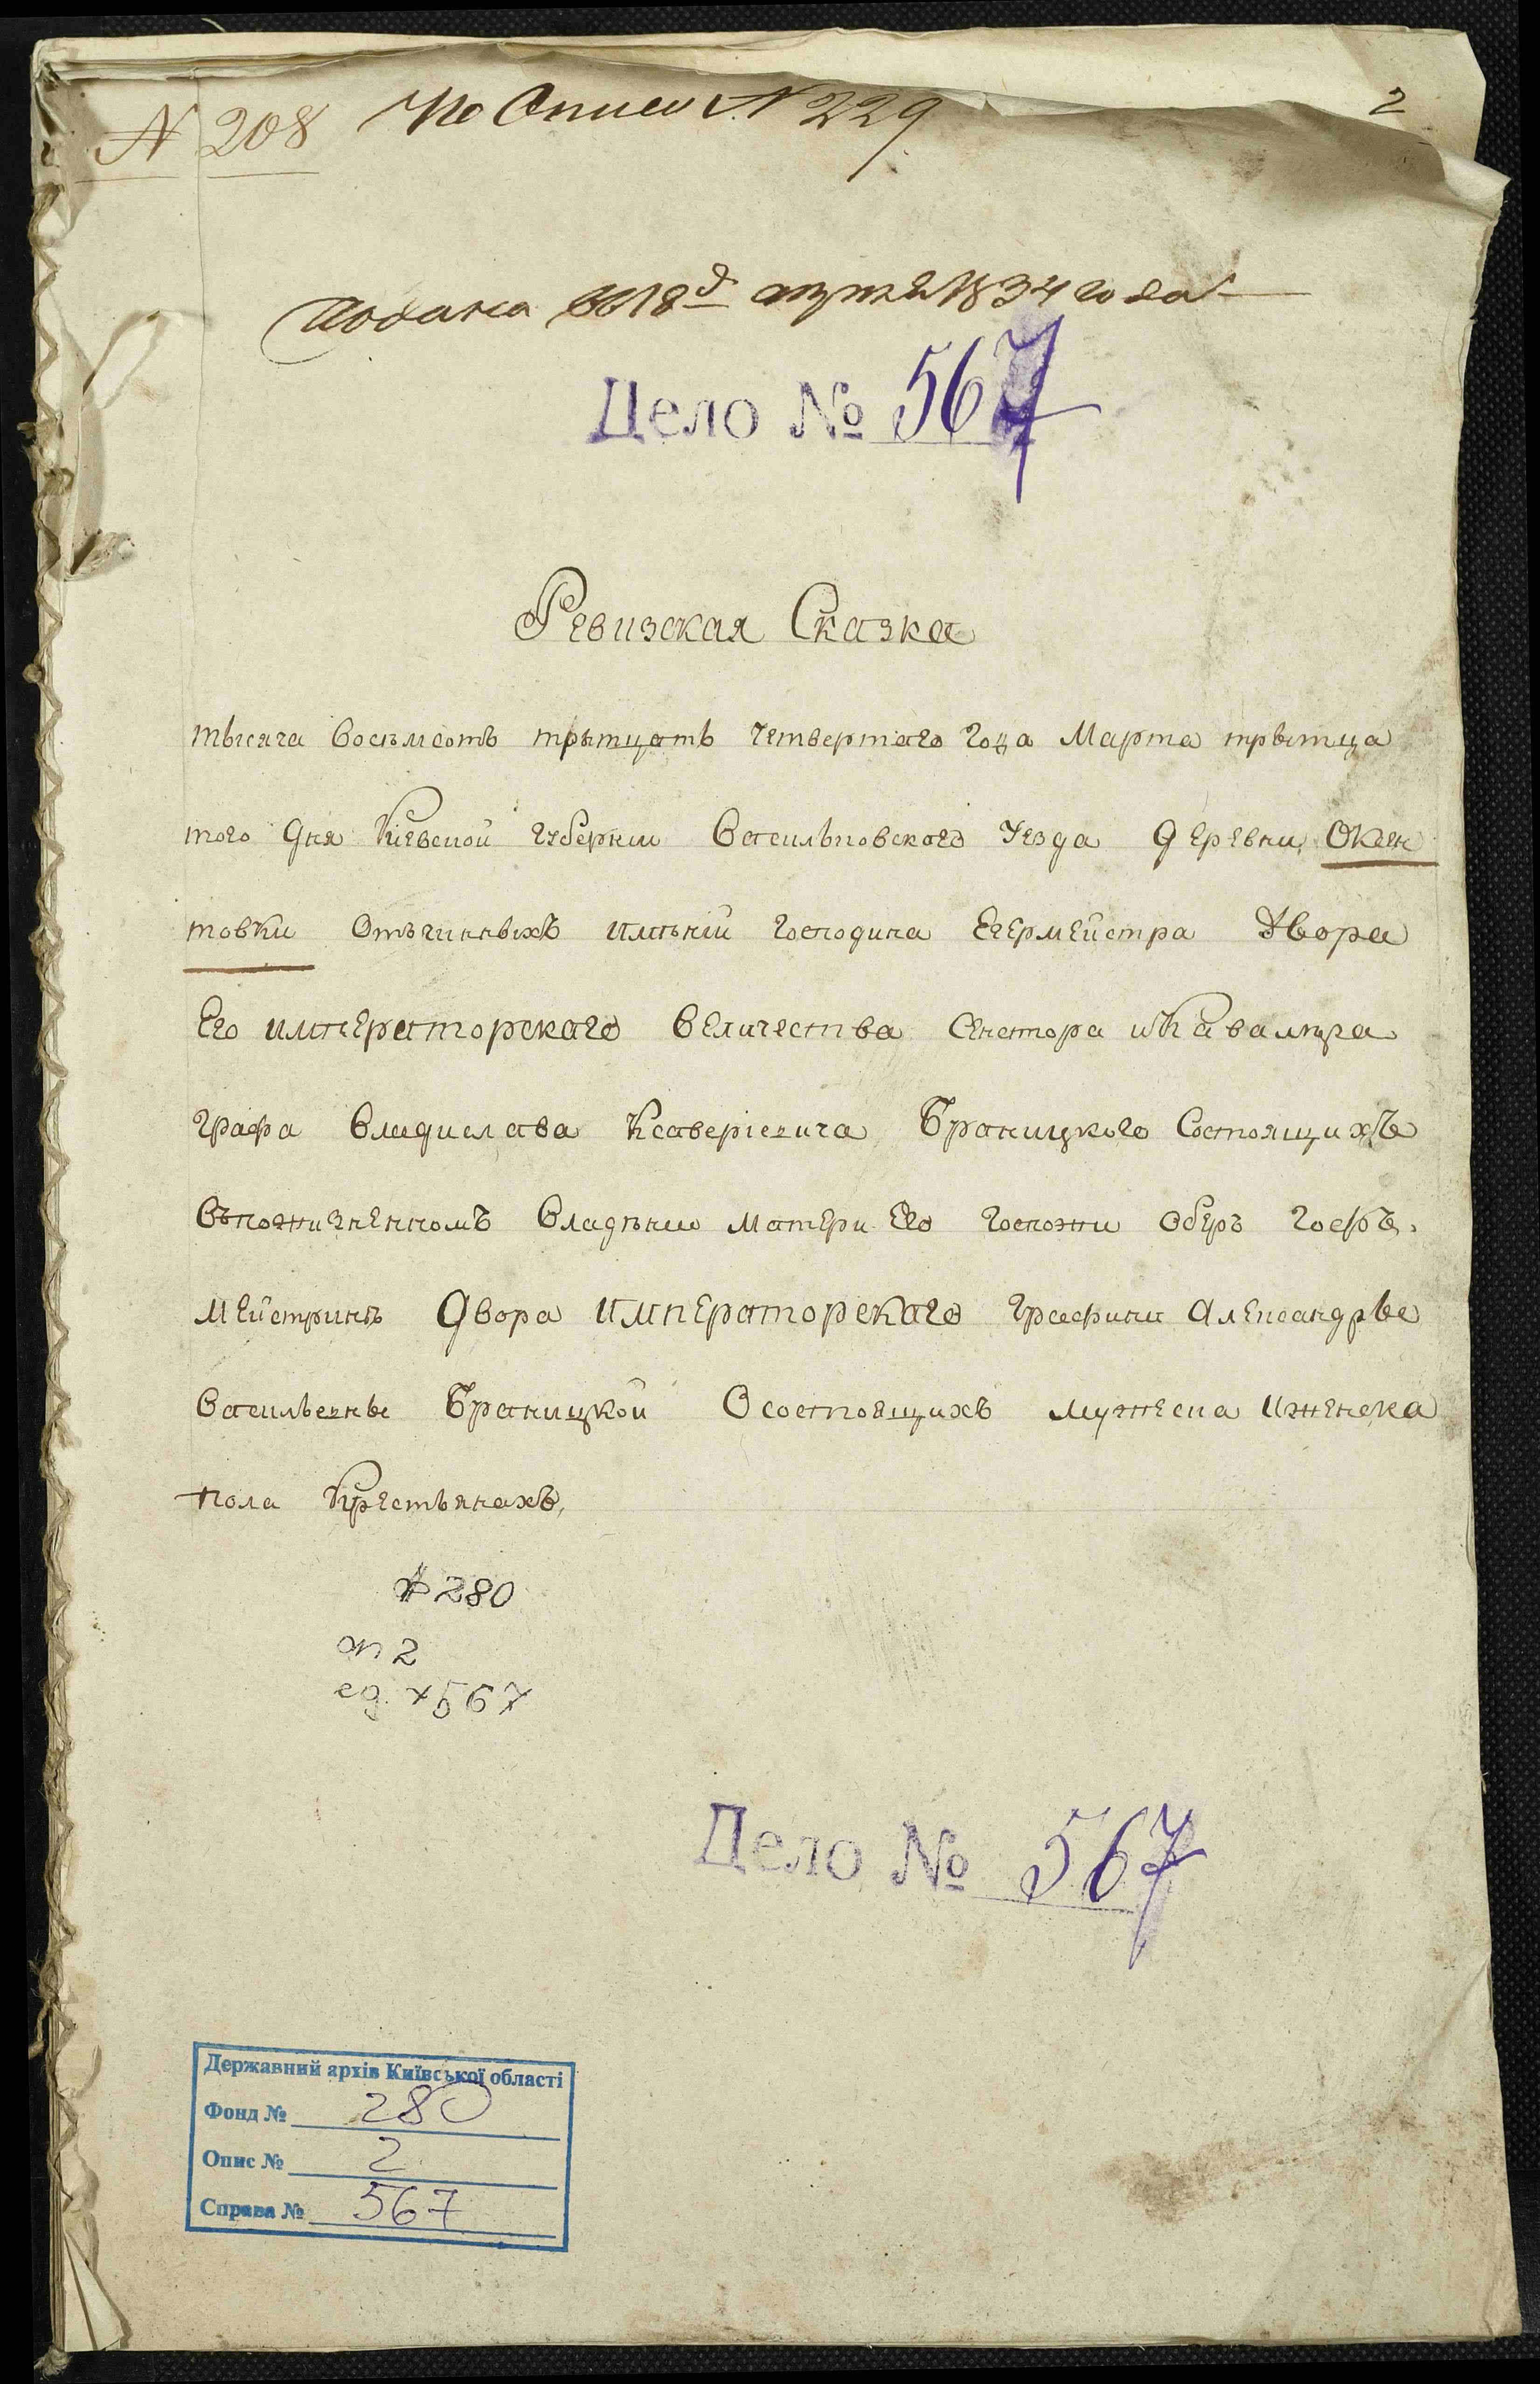 N 208 По Описи N 229 2
Подана въ 18й апреля 1834 года
Дело № 567
Ревизская Сказка
тысяча восемсотъ трытцать четвертаго года Марта трытца
того Дня Киевской губернии Васильковского Уезда Деревни Окен
товки Отъчинныхъ имѣний Господина Егермейстра Двора
Его императорскаго величества Сенатора и Кавалера
Графа Владислава Ксаверіевича Браницкого Состоящихъ
въпожизненномъ владѣнии матери Его Госпожи Оберъ Гофъ-
мейстринѣ Двора императорскаго Графини Александры
Васильевны Браницкой О состоящихъ мужеска и женска
пола Крестьянахъ,
ф 280
оп 2
ед. х 567
Дело № 567
Державний архів Київської області
Фонд № 280
Опис № 2
Справа № 567